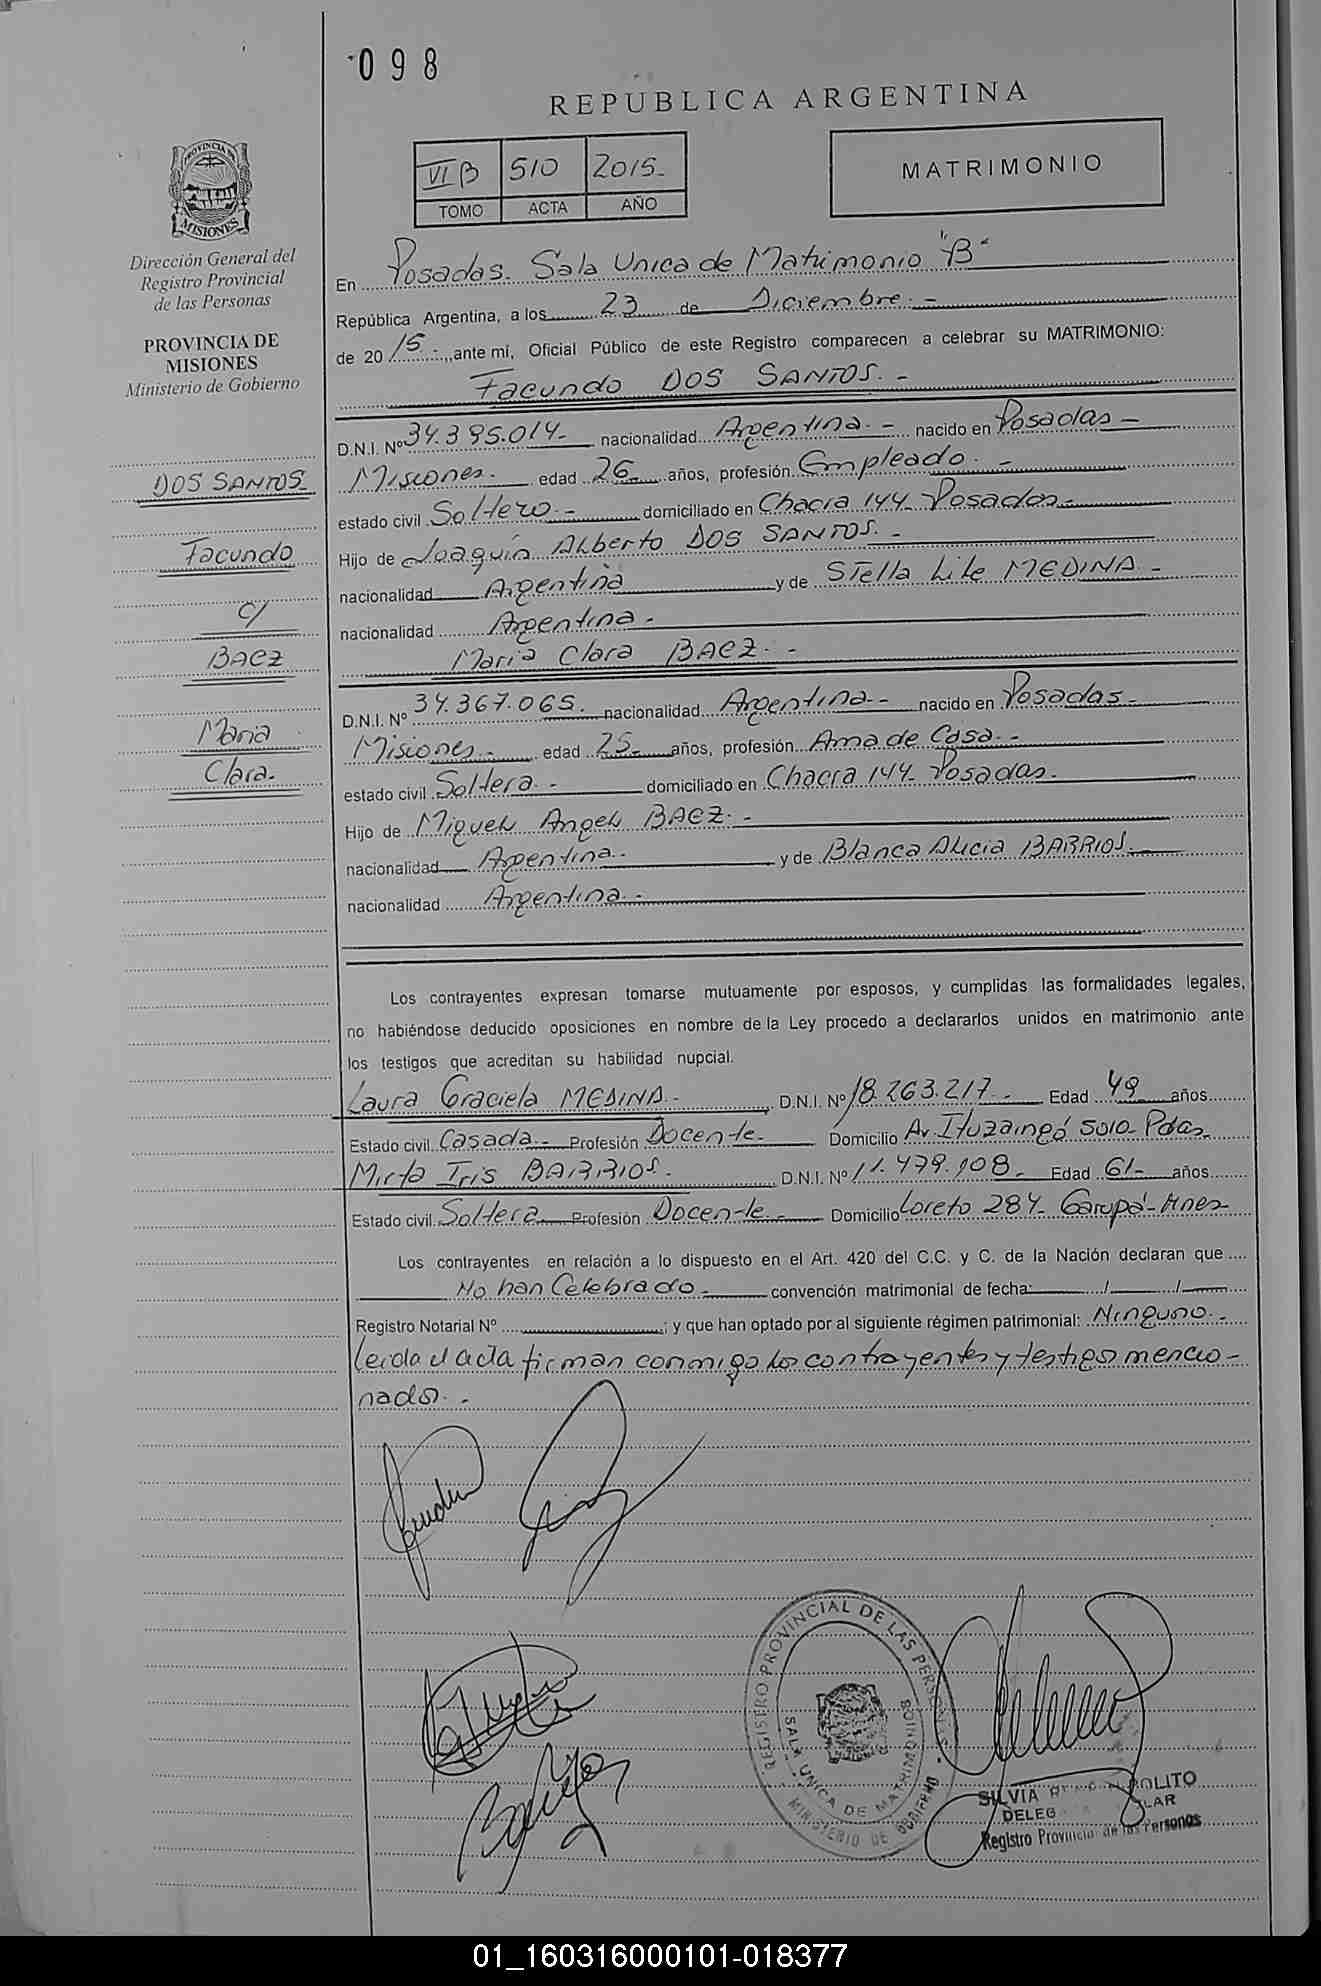 098
REPUBLICA ARGENTINA
VI B 510 2015-
TOMO ACTA AÑO
MATRIMONIO
PROVINCIA DE MISIONES
Dirección General del
Registro Provincial
de las Personas
PROVINCIA DE
MISIONES
Ministerio de Gobierno
DOS SANTOS
Facundo
C/
BAEZ
Maria
Clara.
En Posadas. Sala Unica de Matrimonio "B"
República Argentina, a los 23 de Diciembre.-
de 2015 ante mí, Oficial Público de este Registro comparecen a celebrar su MATRIMONIO:
Facundo DOS SANTOS.-
D.N.I. Nº 34.395.014- nacionalidad Argentina.- nacido en Posadas-
Misiones.- edad 26- años, profesión Empleado.-
estado civil Soltero.- domiciliado en Chacra 144- Posadas-
Hijo de Joaquin Alberto DOS SANTOS.-
nacionalidad Argentina y de Stella Lile MEDINA-
nacionalidad Argentina.-
Maria Clara BAEZ.-
D.N.I. Nº 34.367.065. nacionalidad Argentina- nacido en Posadas-
Misiones.- edad 25- años, profesión Ama de Casa.-
estado civil Soltera.- domiciliado en Chacra 144- Posadas.
Hijo de Miguel Angel BAEZ.-
nacionalidad Argentina.- y de Blanca Alicia BARRIOS.
nacionalidad Argentina.-
Los contrayentes expresan tomarse mutuamente por esposos, y cumplidas las formalidades legales,
no habiéndose deducido oposiciones en nombre de la Ley procedo a declararlos unidos en matrimonio ante
los testigos que acreditan su habilidad nupcial.
Laura Graciela MEDINA.- D.N.I. Nº 18.263.217.- Edad 49 años
Estado civil Casada- Profesión Docente- Domicilio Av. Ituzaingó 5010- Pdas-
Mirta Iris BARRIOS. D.N.I. Nº 11.479.908- Edad 61- años
Estado civil Soltera- Profesión Docente- Domicilio Loreto 284- Garupá-Mnes-
Los contrayentes en relación a lo dispuesto en el Art. 420 del C.C. y C. de la Nación declaran que
No han Celebrado- convención matrimonial de fecha: / /
Registro Notarial Nº ; y que han optado por al siguiente régimen patrimonial: Ninguno.-
Leida el acta firman conmigo los contrayentes y testigos mencio-
nados.-
REGISTRO PROVINCIAL DE LAS PERSONAS
SALA UNICA DE MATRIMONIOS
MINISTERIO DE GOBIERNO
SILVIA POLITO
DELEG LAR
Registro Provincial de las Personas
01_160316000101-018377